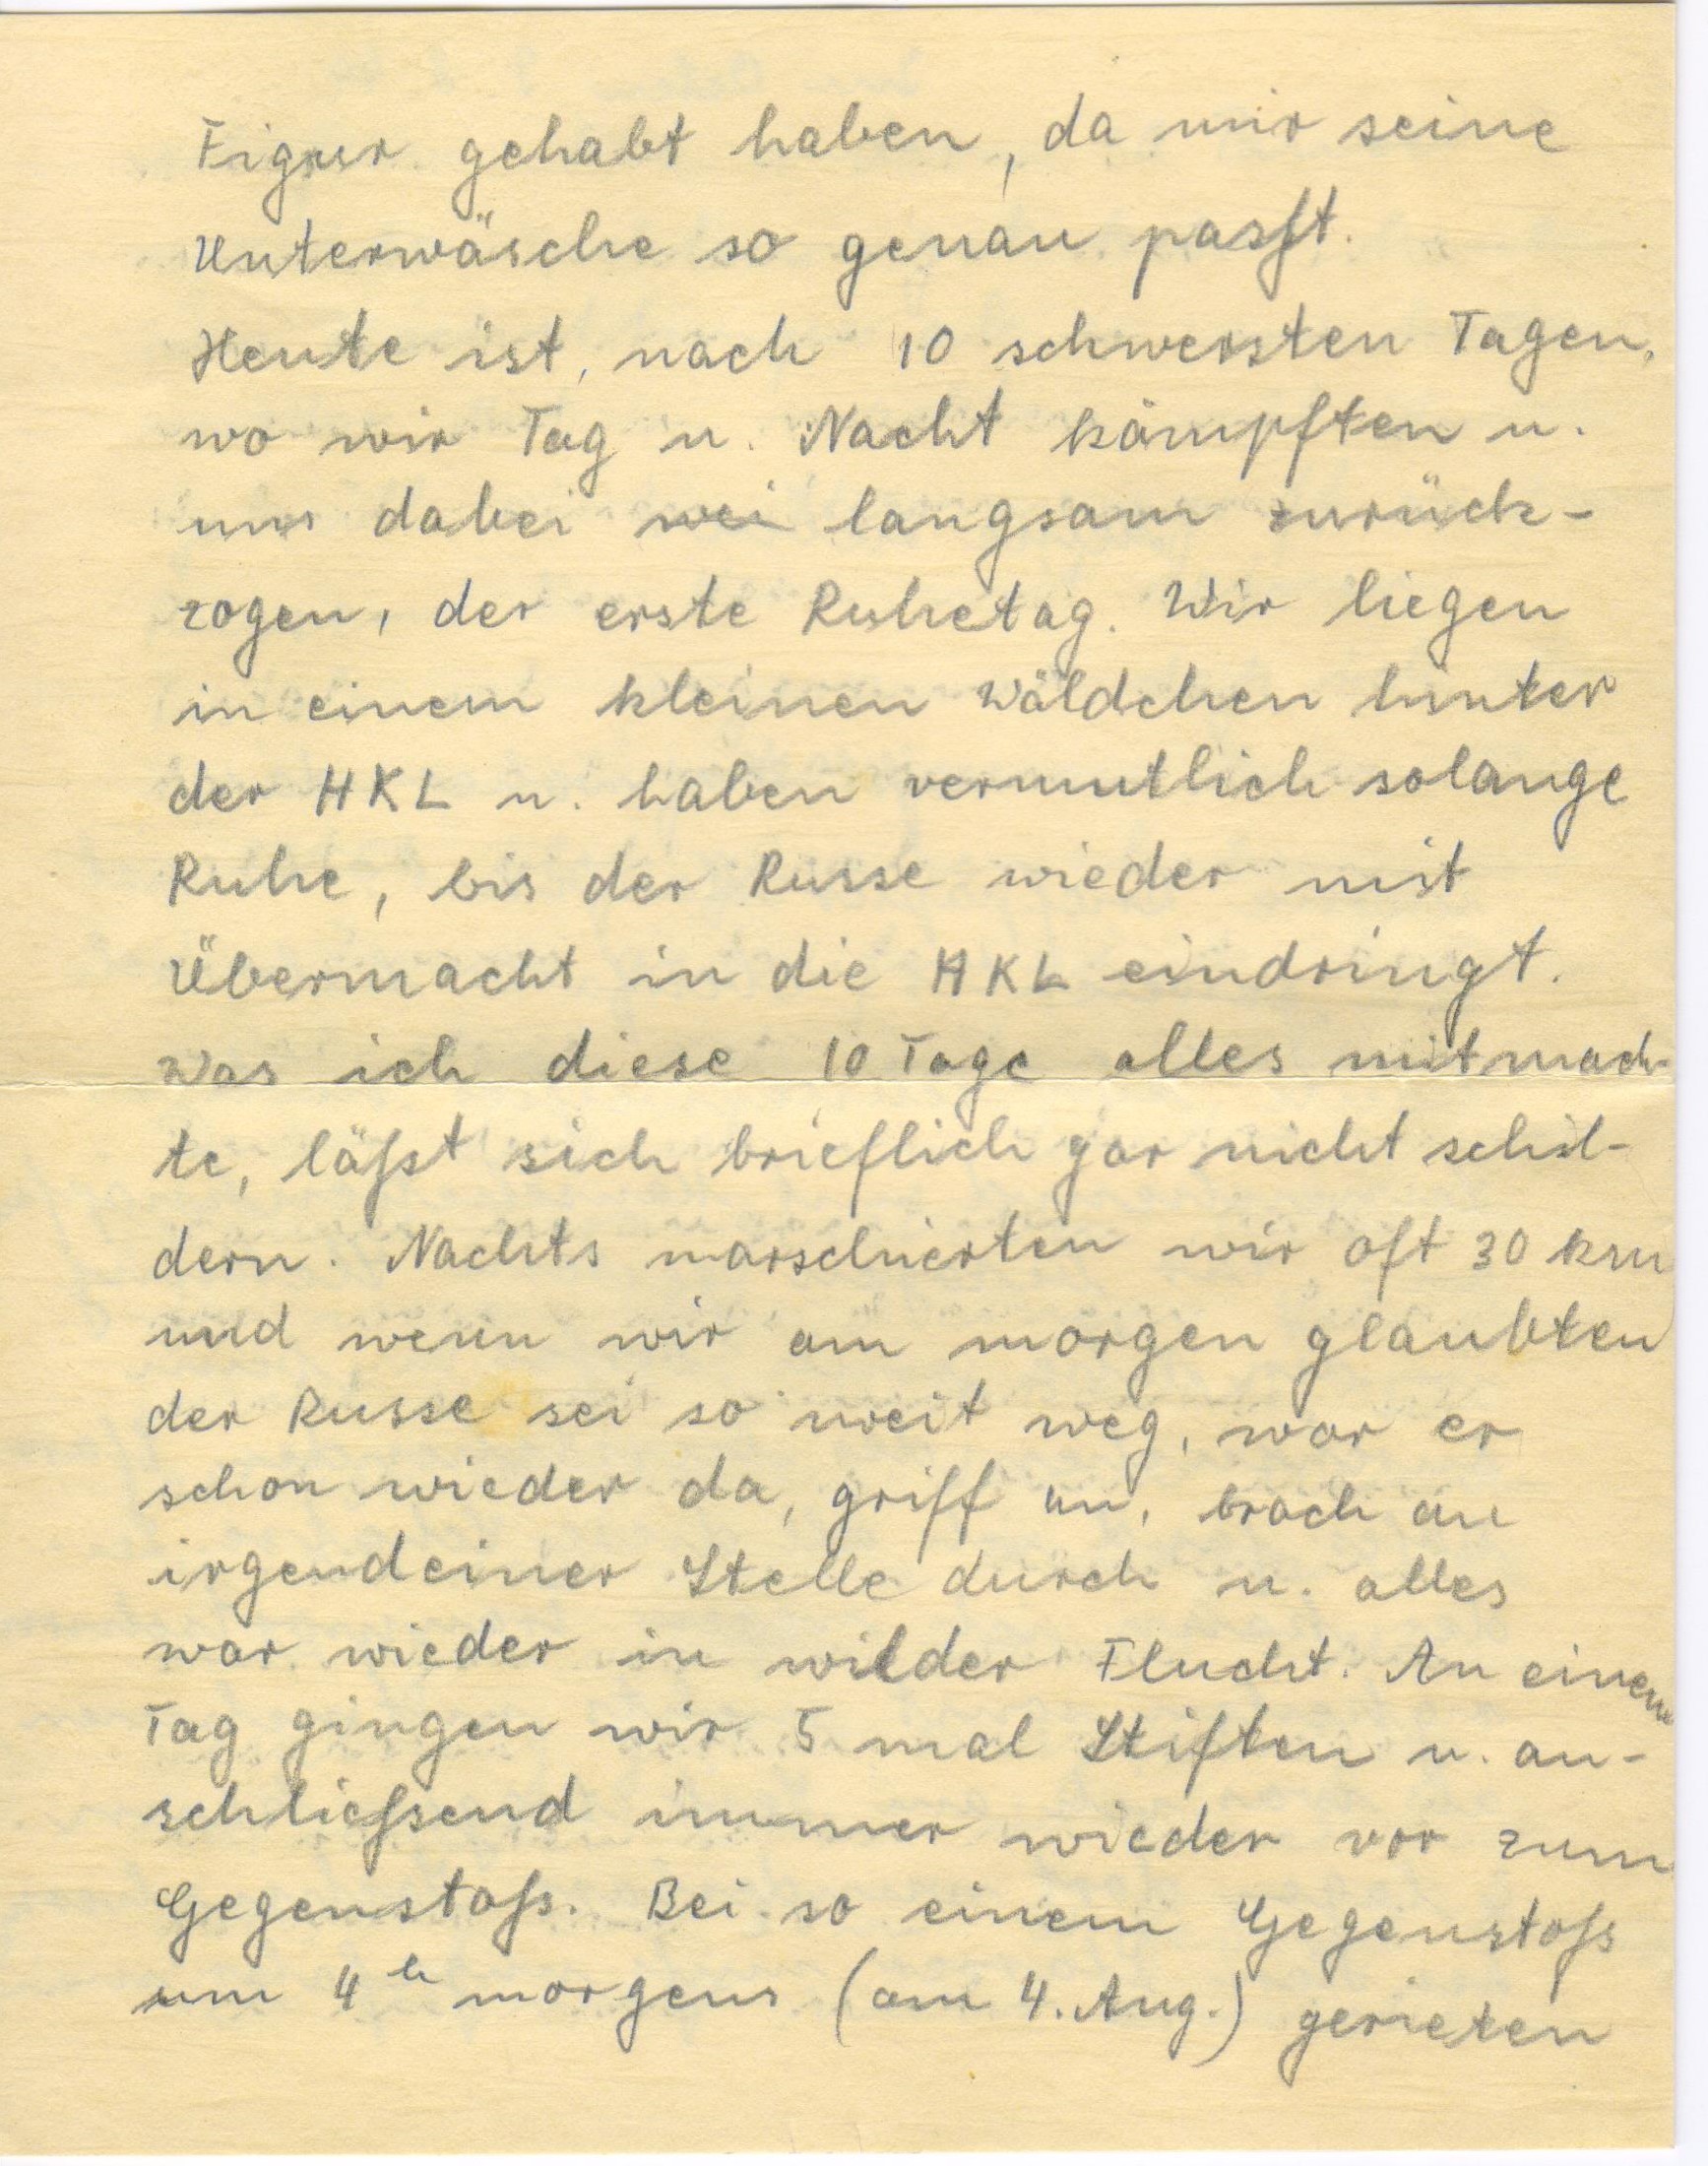 Figur gehabt haben, da mir seine
Unterwäsche so genau passt.
Heute ist, nach 10 schwersten Tagen,
wo wir Tag u. Nacht kämpften u.
uns dabei wei langsam zurück-
zogen, der erste Ruhetag. Wir liegen
in einem kleinen Wäldchen hinter
der HKL u. haben vermutlich solange
Ruhe, bis der Russe wieder mit
Übermacht in die HKL eindringt.
Was ich diese 10 Tage alles mitmach-
te, lässt sich brieflich gar nicht schil-
dern. Nachts marschierten wir oft 30 km
und wenn wir am morgen glaubten
der Russe sei so weit weg, war er
schon wieder da, griff an, brach an
irgendeiner Stelle durch u. alles
war wieder in wilder Flucht. An einem
Tag gingen wir 5 mal Stiften u. an-
schliessend immer wieder vor zum
Gegenstoss. Bei so einem Gegenstoss
um 4 h morgens (am 4. Aug.) gerieten